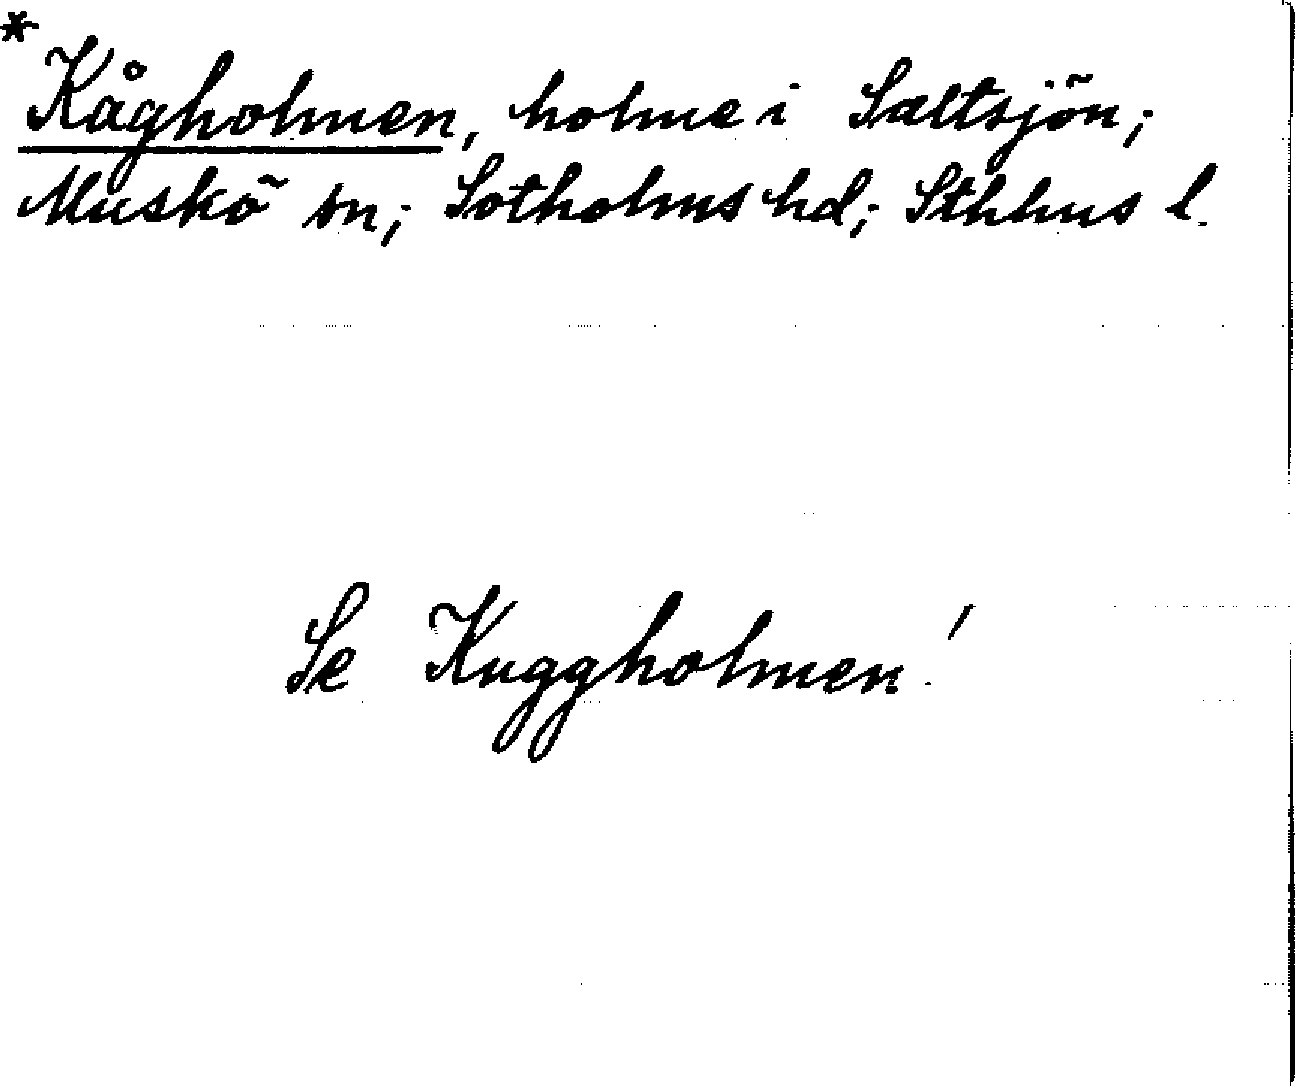 *
Kågholmen, holme i Saltsjön;
Muskö sn; Sotholms hd; Sthlms l.
Se Kuggholmen!